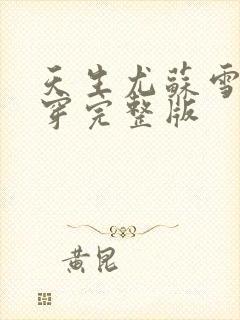 天生尤蘇雪
穿完整版
黄昆